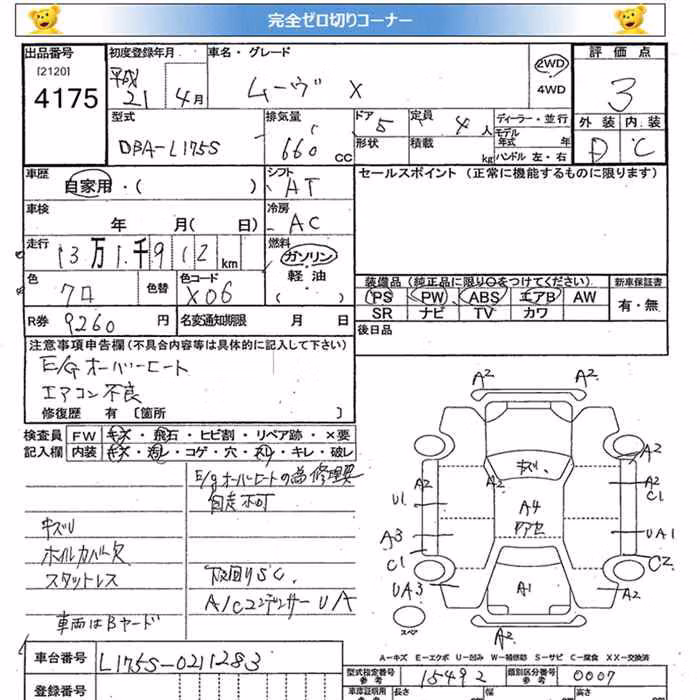 完全ゼロ切りコーナー
出品番号 初度登録年月 車名・グレード 評価点
[2120] 平成 2WD
4175 21年 4月 ムーヴ X 4WD 3
型式 排気量 ドア 定員 ディーラー・並行 外装 内装
DBA-L175S 660 CC 5 4人 モデル年式 年 D C
形状 積載 kg ハンドル 左・右
車歴 シフト セールスポイント (正常に機能するものに限ります)
自家用・( ) AT
車検 冷房
年 月( 日) AC
走行 燃料
13万1千912km ガソリン
色 色替 色コード 軽油 装備品(純正品に限り○をつけてください) 新車保証書
クロ X06 ( ) PS PW ABS エアB AW 有・無
SR ナビ TV カワ
R券 9260円 名変通知期限 月 日 後日品
注意事項申告欄(不具合内容等は具体的に記入して下さい)
E/G オーバーヒート
エアコン不良
修復歴 有 [箇所 ]
検査員 FW キズ・飛石・ヒビ割・リペア跡・×要
記入欄 内装 キズ・汚レ・コゲ・穴・スレ・キレ・破レ
E/g オーバーヒートの為 修理要
自走不可
キズリ
ホイルカバー欠
スタットレス
下回りSC
A/Cコンデンサー UA
車両はBヤード
A2 A2
キズリ
A2 A2 A2
A2 C1
U1 A4
アセ
A3 UA1
C1 C2
UA3 A1 A2
スペア A2
A-キズ E-エクボ U-凹み W-補修跡 S-サビ C-腐食 XX-交換済
車台番号 L175S-0211283
型式指定番号 参考 15492 類別区分番号 参考 0007
登録番号
車庫証明用 参考 長さ 幅 高さ